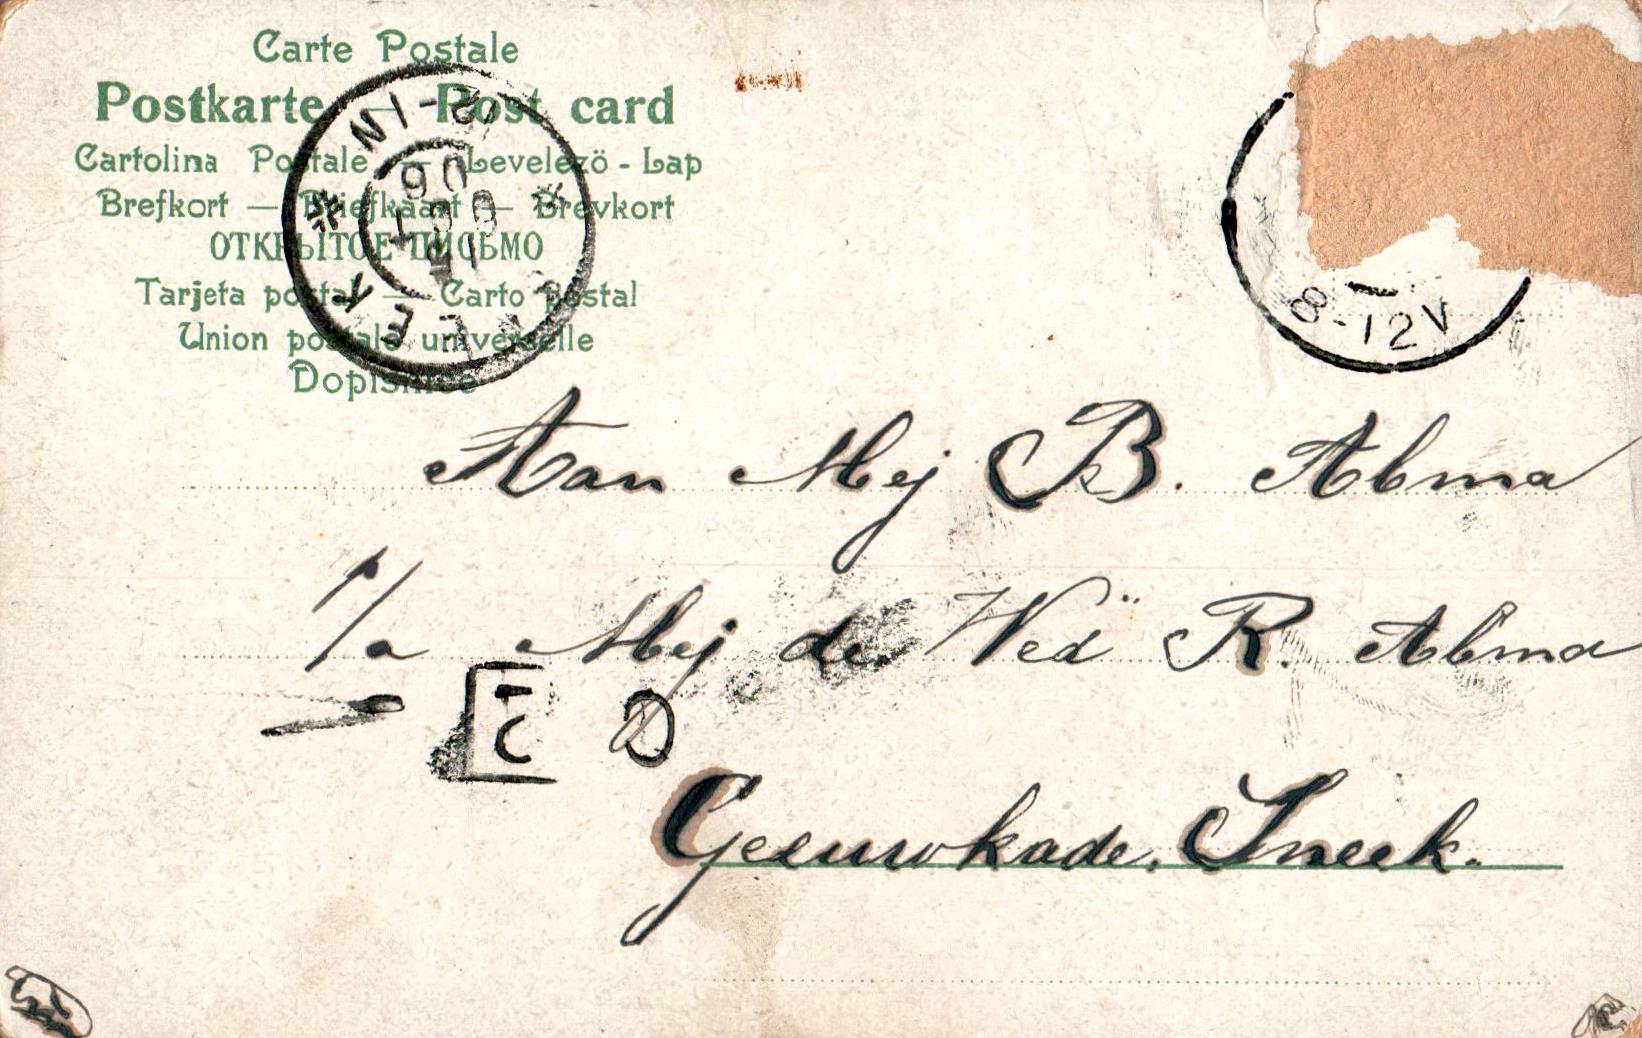 Carte Postale
Postkarte — Post card
Cartolina Postale — Levelező - Lap
Brefkort — Briefkaart — Brevkort
ОТКРЫТОЕ ПИСЬМО
Tarjeta postal — Carto postal
Union postale universelle
Dopisnice
06
OCT
8-12V
Aan Mej B. Abma
p/a Mej de Wed R. Abma
Geeuwkade. Sneek.